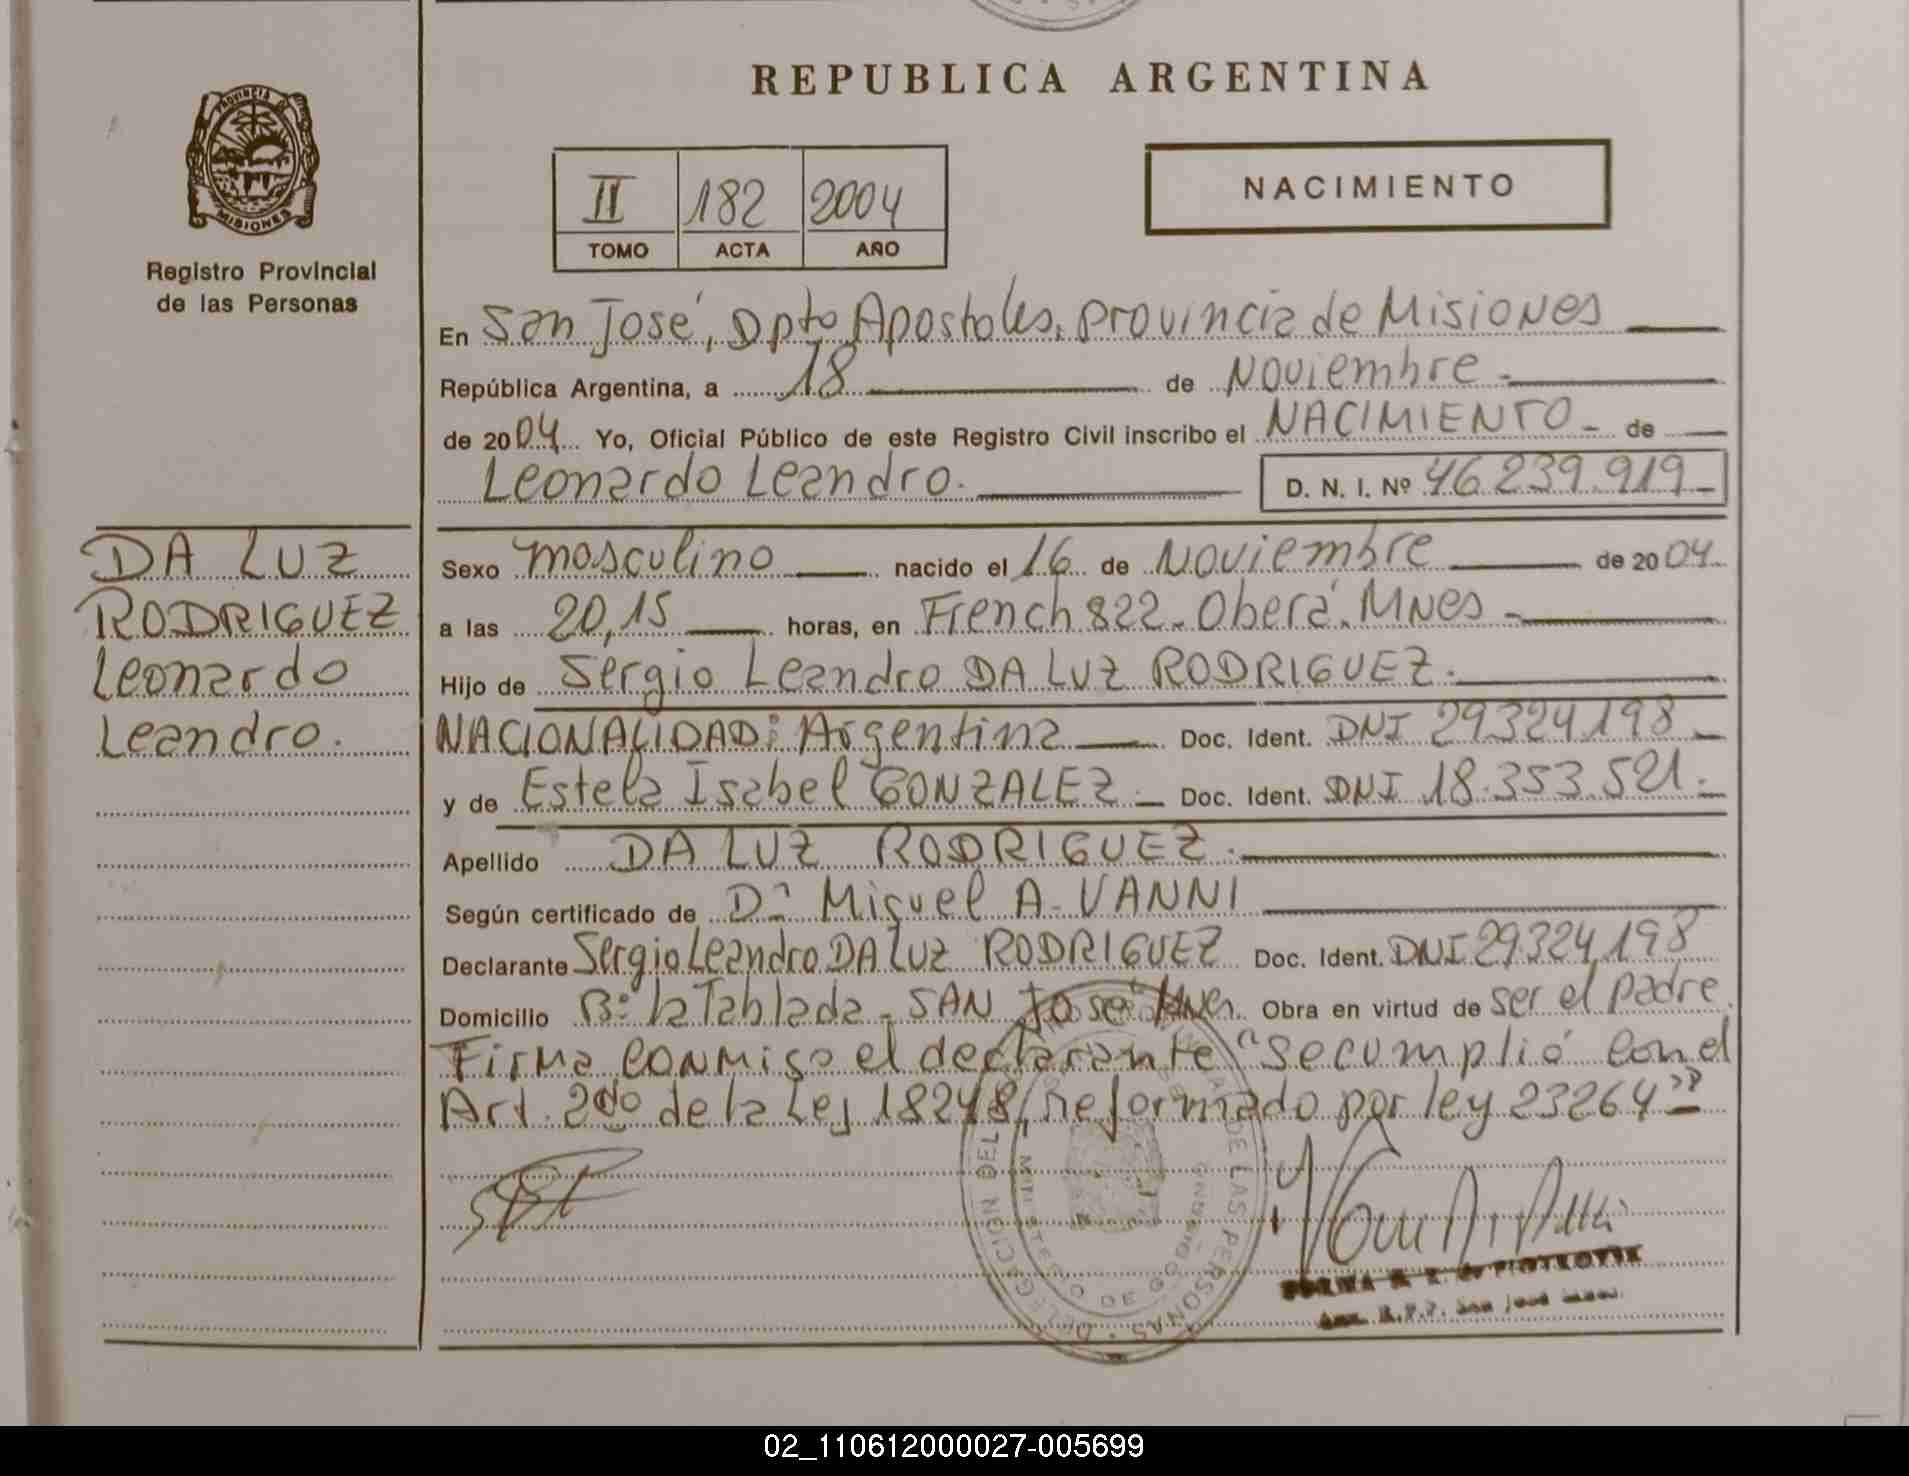 REPUBLICA ARGENTINA
PROVINCIA DE
MISIONES
Registro Provincial
de las Personas
II 182 2004
TOMO ACTA AÑO
NACIMIENTO
En San José, Dpto Apostoles, Provincia de Misiones
República Argentina, a 18 de Noviembre
de 2004 Yo, Oficial Público de este Registro Civil inscribo el NACIMIENTO de
Leonardo Leandro. D. N. I. Nº 46.239.919
DA LUZ
RODRIGUEZ
Leonardo
Leandro.
Sexo masculino nacido el 16 de Noviembre de 2004
a las 20,15 horas, en French 822 - Oberá. MNes
Hijo de Sergio Leandro DA LUZ RODRIGUEZ.
NACIONALIDAD: Argentina Doc. Ident. DNI 29324198
y de Estela Isabel GONZALEZ Doc. Ident. DNI 18.353.521.
Apellido DA LUZ RODRIGUEZ.
Según certificado de Dr Miguel A. VANNI
Declarante Sergio Leandro DA LUZ RODRIGUEZ Doc. Ident. DNI 29324198
Domicilio Bº la Tablada - SAN José Mnes. Obra en virtud de ser el padre.
Firma conmigo el declarante "se cumplió con el
Art. 2do de la Ley 18248, reformado por ley 23264"
DELEGACION DEL DE LAS PERSONAS
02_110612000027-005699